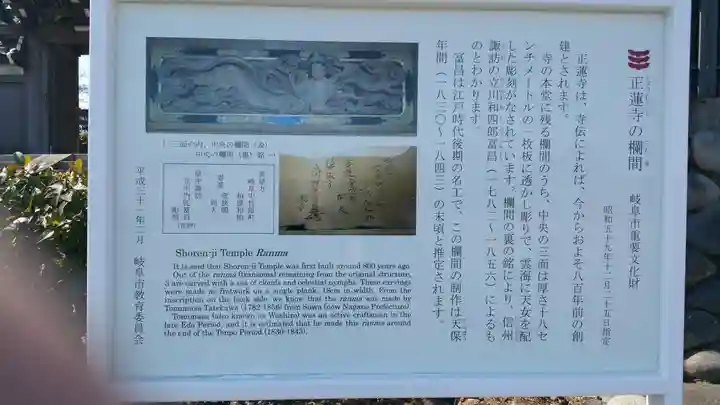 正蓮寺の欄間
岐阜市重要文化財
昭和五十九年十一月二十五日指定
正蓮寺は、寺伝によれば、今からおよそ八百年前の創
建とされます。
寺の本堂に残る欄間のうち、中央の三面は厚さ十八セ
ンチメートルの一枚板に透かし彫りで、雲海に天女を配
した彫刻がなされています。欄間の裏の銘により、信州
諏訪の立川和四郎富昌（一七八二～一八五六）によるも
のとわかります。
富昌は江戸時代後期の名工で、この欄間の制作は天保
年間（一八三〇～一八四三）の末頃と推定されます。
Shoren-ji Temple Ranma
It is said that Shoren-ji Temple was first built around 800 years ago.
Out of the ranma (transoms) remaining from the original structure,
3 are carved with a sea of clouds and celestial nymphs. These carvings
were made as fretwork on a single plank, 18cm in width. From the
inscription on the back side, we know that the ranma was made by
Tomomasa Tatekawa (1782-1856) from Suwa (now Nagano Prefecture)
Tomomasa (also known as Washiro) was an active craftsman in the
late Edo Period, and it is estimated that he made this ranma around
the end of the Tenpo Period (1830-1843).
平成三十一年二月 岐阜市教育委員会